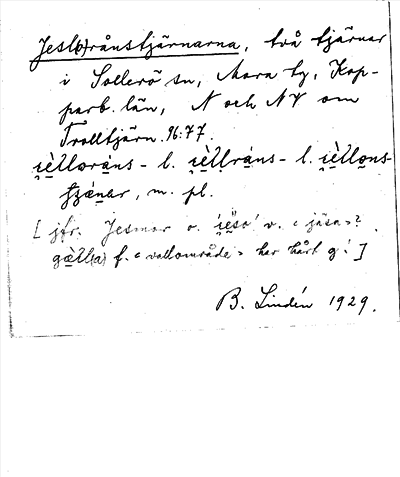 Jesl(o)rånstjärnarna, två tjärnar
i Sollerö sn, Mora tg, Kop-
parb. län, N och NV om
Trolltjärn. 96:77.
i̯èl̀loråns- l. i̯èl̀lråns- l. i̯èl̀lo̯ns-
m. pl.
[jfr. Jesmor o. v. "jäsa"?
f. "vallområde" har hårt g!]
B. Lindén 1929.